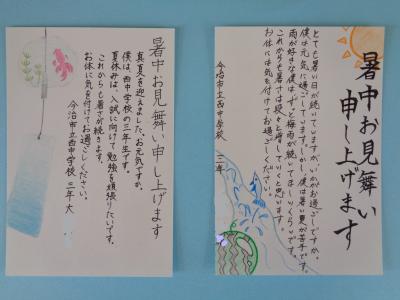 暑中お見舞い
申し上げます
とても暑い日が続いていますが、いかがお過ごしですか。
僕は元気に過ごしています。しかし、僕は暑い夏が苦手です。
雨が好きな僕は、ずっと梅雨が続いてほしいくらいです。
これからも暑さは段々と増していくと思います。
お体には気を付けてお過ごしください。
今治市立西中学校
暑中お見舞い申し上げます
真夏を迎えました。お元気ですか。
僕は、西中学校の三年生です。
夏休みは、入試に向けて勉強を頑張りたいです。
これからも暑さが続きます。
お体に気を付けてお過ごしください。
今治市立西中学校 三年 大